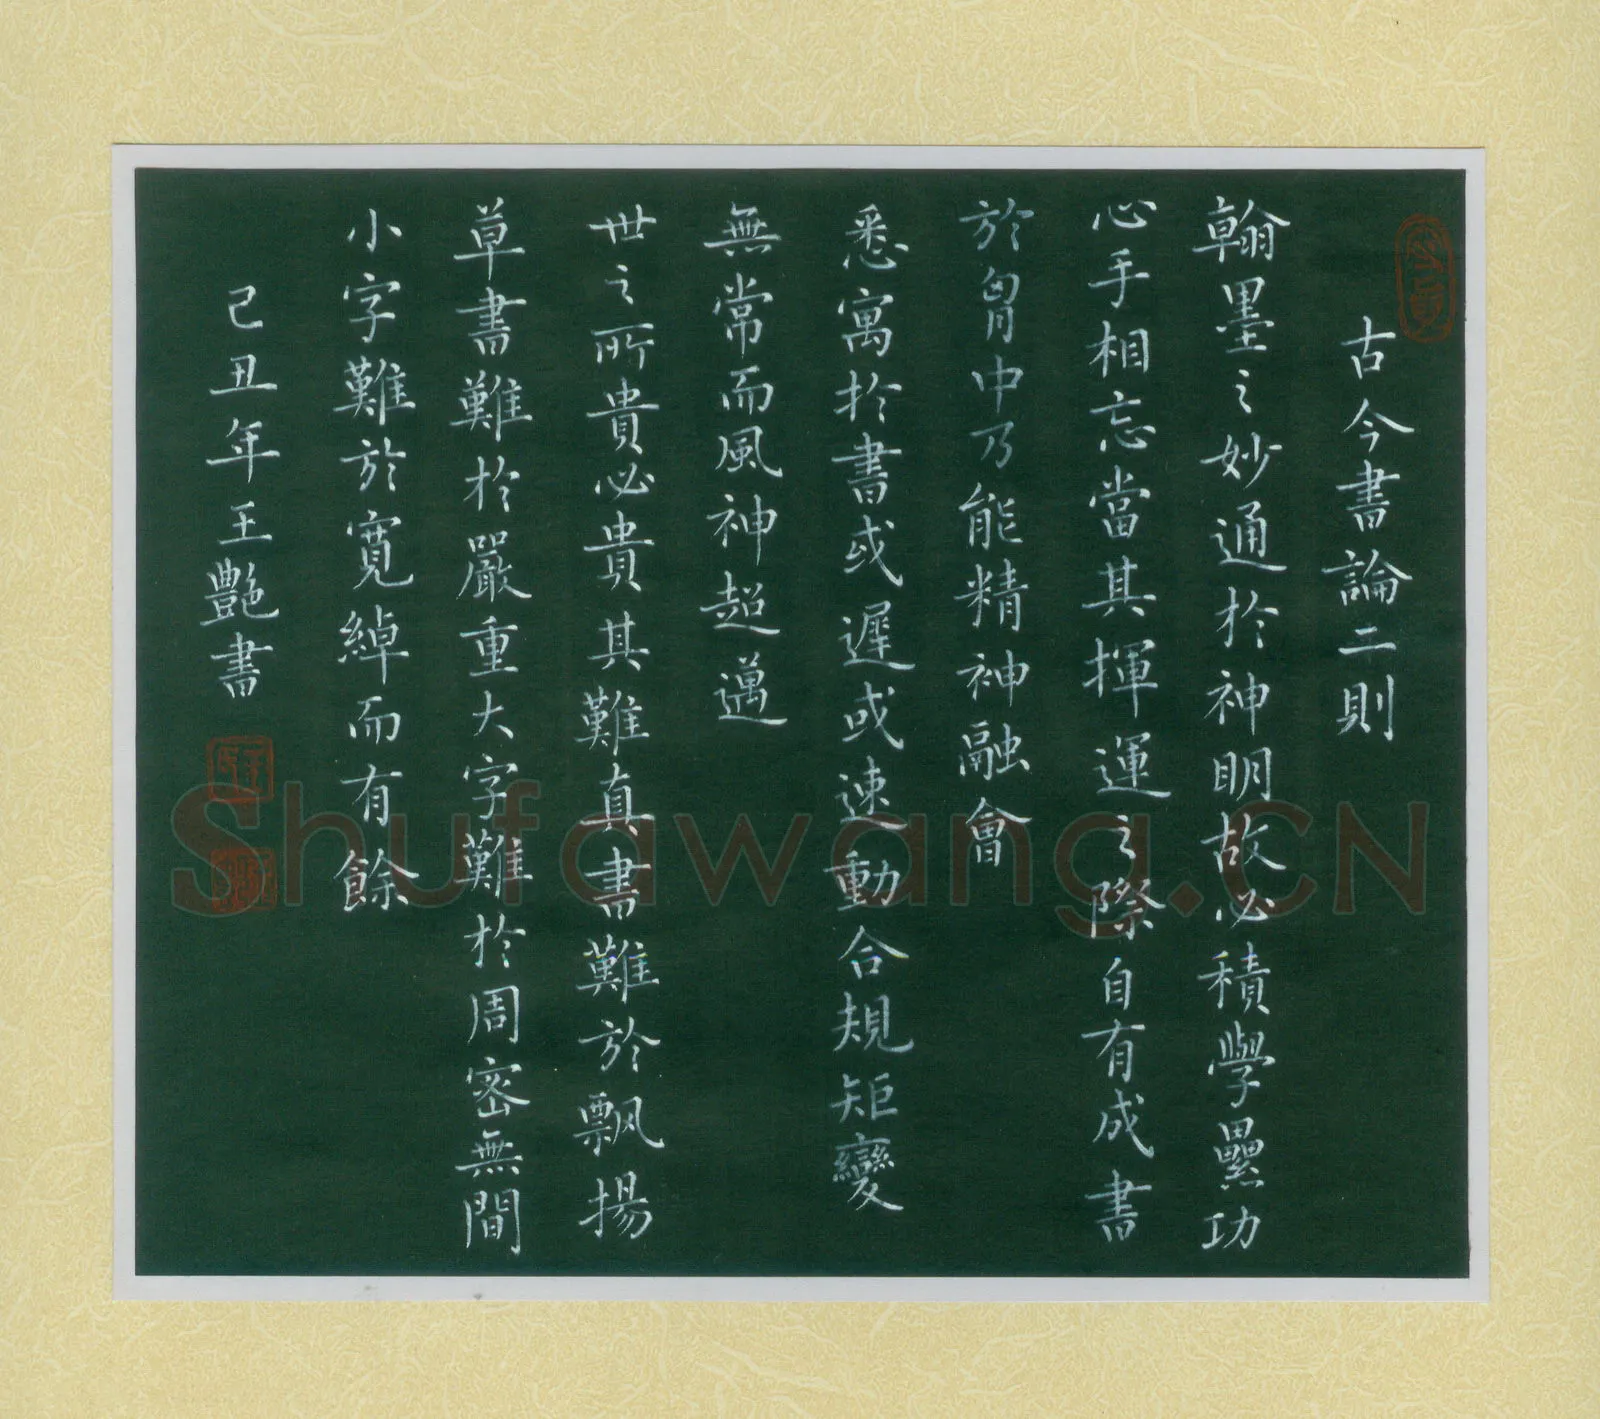 古今書論二則
翰墨之妙通於神明故必積學纍功
心手相忘當其揮運之際自有成書
於胷中乃能精神融會
悉寓於書或遲或速動合規矩變
無常而風神超邁
世之所貴必貴其難真書難於飄揚
草書難於嚴重大字難於周密無間
小字難於寬綽而有餘
己丑年王艷書
Shufawang.CN